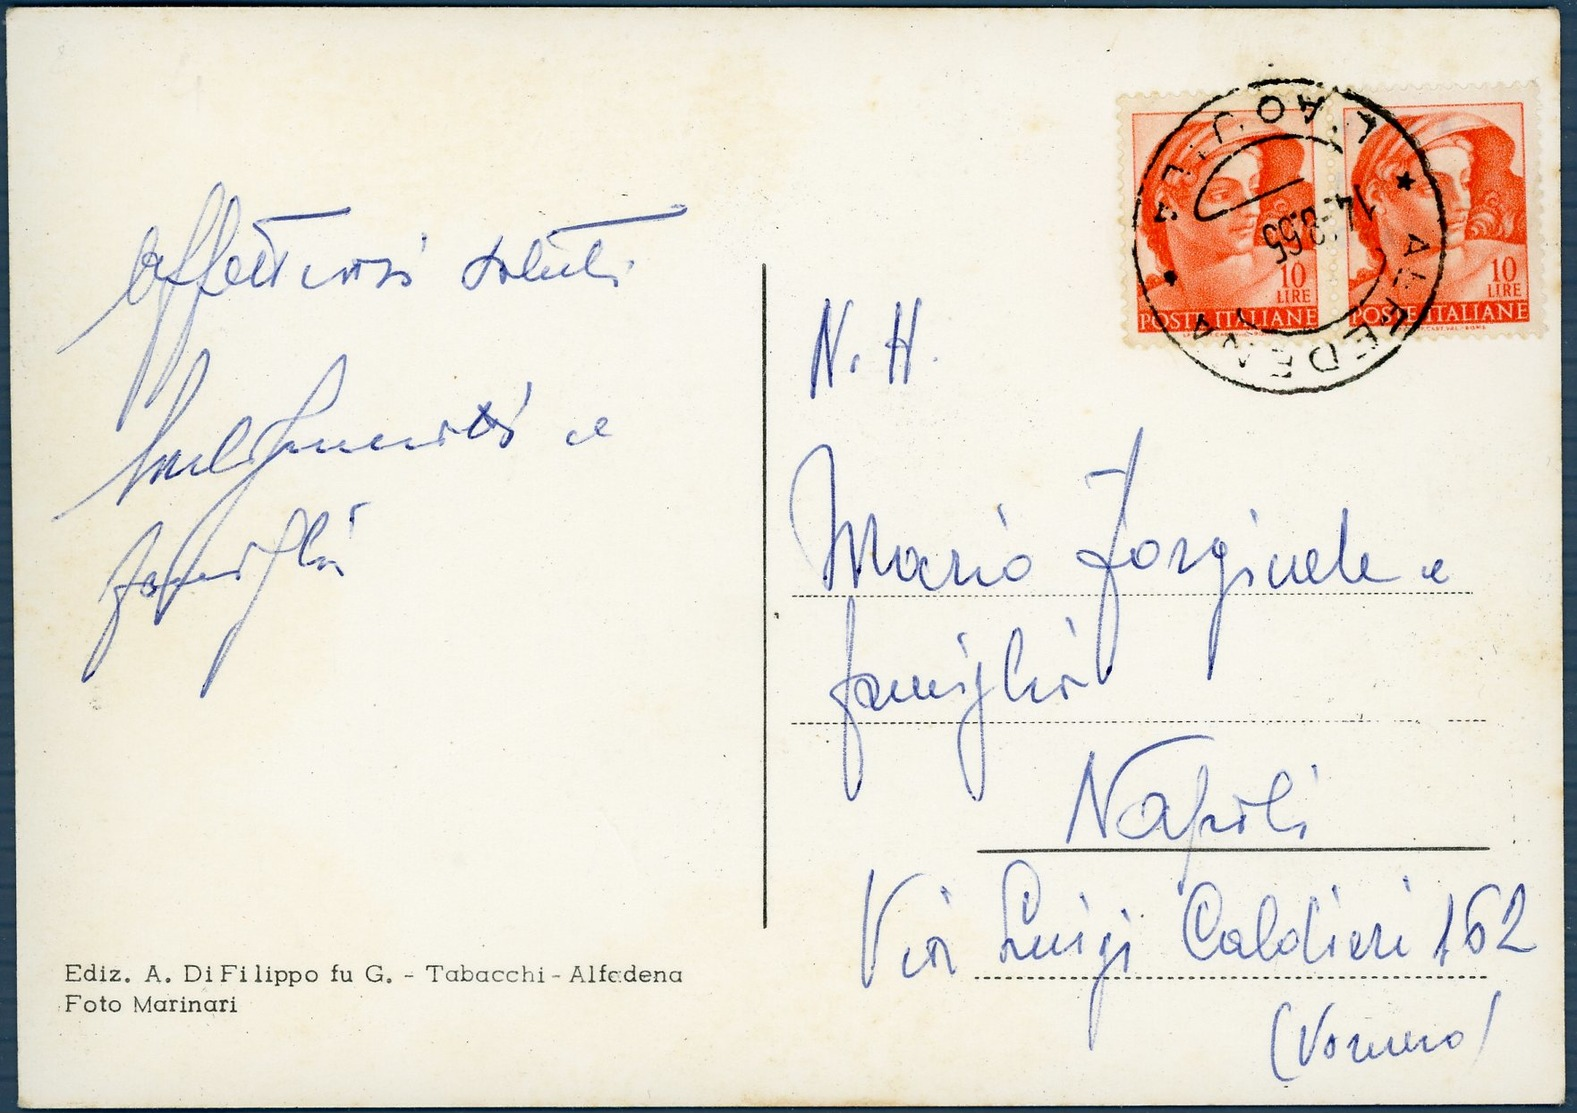 affettuosi saluti
e
famiglia
Ediz. A. Di Filippo fu G. - Tabacchi - Alfedena
Foto Marinari
L'AQUILA
14-8.65
ALFEDENA
10
LIRE
POSTE ITALIANE
10
LIRE
POSTE ITALIANE
N. H.
Mario e
famiglia
Napoli
Via Luigi Caldieri 162
(Vomero)